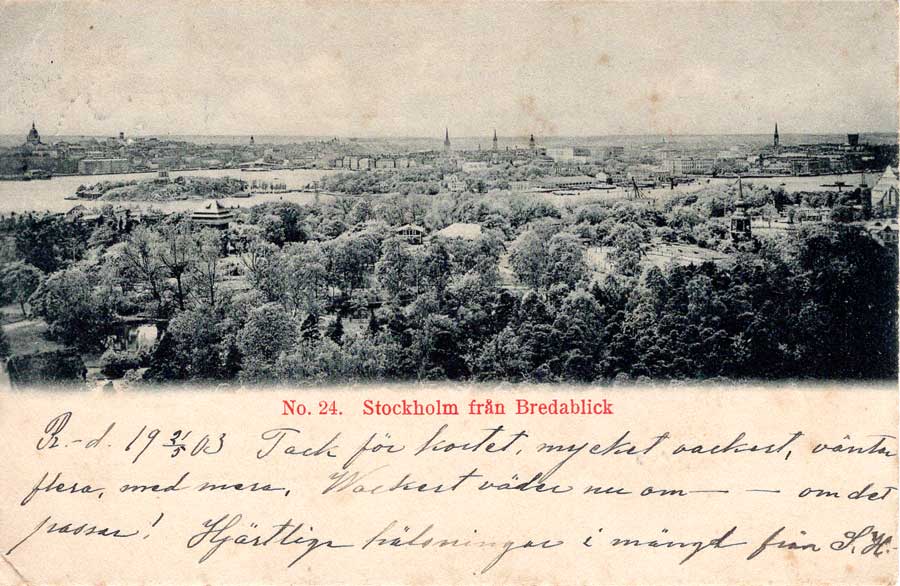 No. 24. Stockholm från Bredablick
R.-d. 19 21/5 03 Tack för kortet, mycket vackert, väntar
flera, med mera. Vackert väder nu om — — om det
passar! Hjärtliga hälsningar i mängd från S. H.